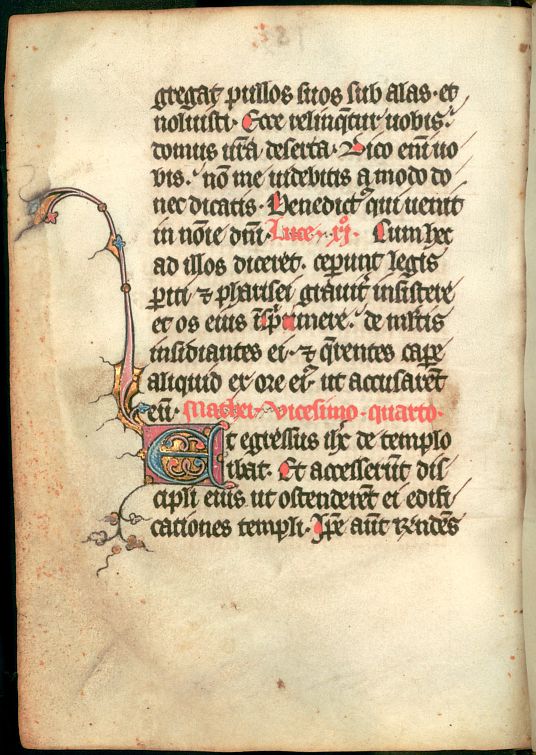 gregat pullos suos sub alas · et
noluisti · Ecce relinq̄tur uobis ·
domus ur̄a deserta · Dico enī uo
bis · nō me uidebitis amodo do
nec dicatis · Benedictꝰ qui uenit
in nōie dn̄i · Luce · xiº · Cum hec
ad illos diceret · ceperunt legis
ꝑiti ⁊ pharisei grauit̾ insistere
et os eius opp̄mere · de m̄ltis
insidiantes ei · ⁊ q̄rentes caꝑe
aliquid ex ore eiꝰ ut accusarēt
eū · Mathei Vicesimo · quarto ·
Et egressus ih̄c de templo
ibat · Et accesserūt dis
cipli eius ut ostenderēt ei edifi
cationes templi · Ip̄e aūt rn̄dēs